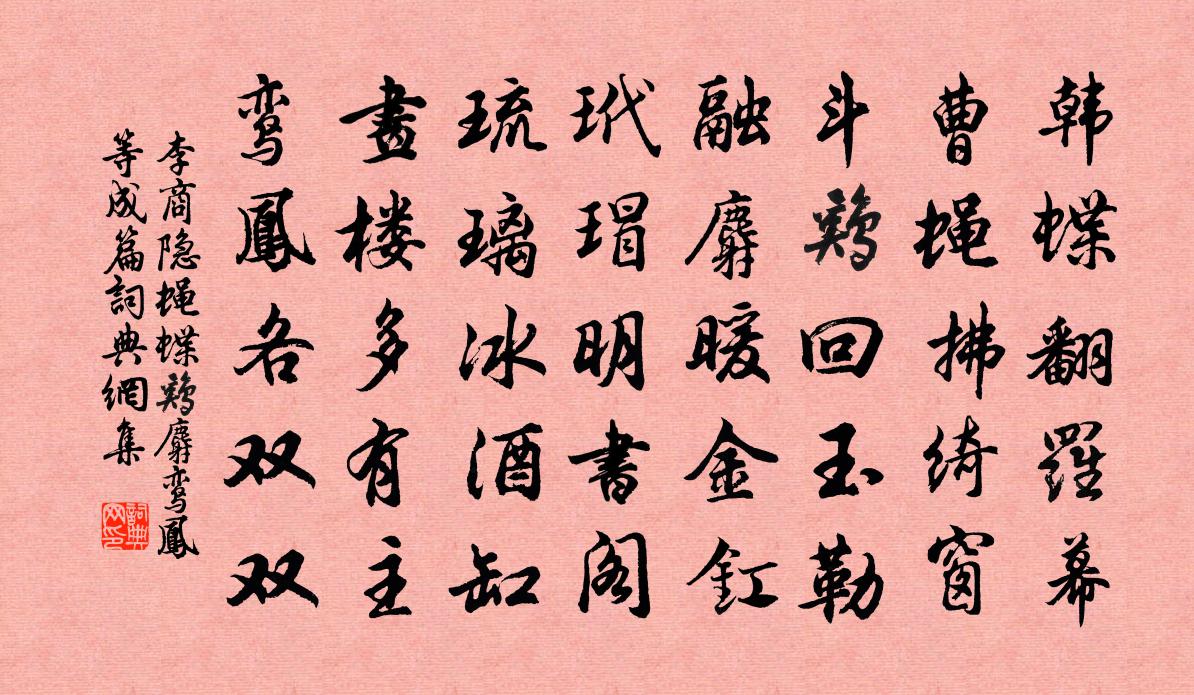 韩蝶翻羅幕
曹蝇拂绮窗
斗鸡回玉勒
融麝暖金釭
玳瑁明書阁
琉璃冰酒缸
畫楼多有主
鸾鳳各双双
李商隐蝇蝶鸡麝鸾鳳
等成篇詞典網集
詞典
网印